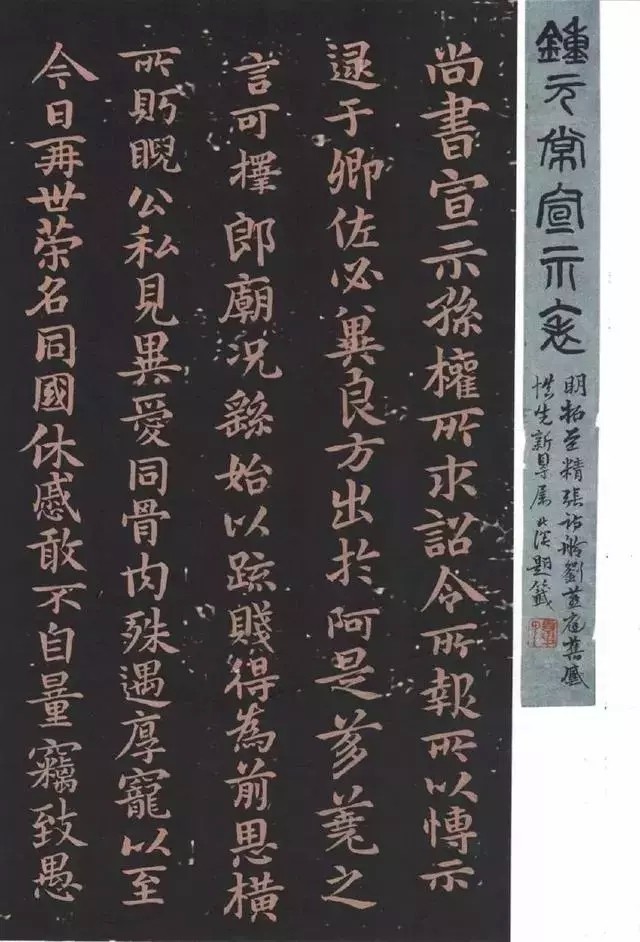 鍾元常宣示表
明拓至精張詩舲劉燕庭舊藏
先新得屬題籤
尚書宣示孫權所求詔令所報所以慱示
逮于卿佐必兾良方出於阿是芻蕘之
言可擇郎廟況繇始以疏賤得為前恩橫
所眄睨公私見異愛同骨肉殊遇厚寵以至
今日再世榮名同國休慼敢不自量竊致愚